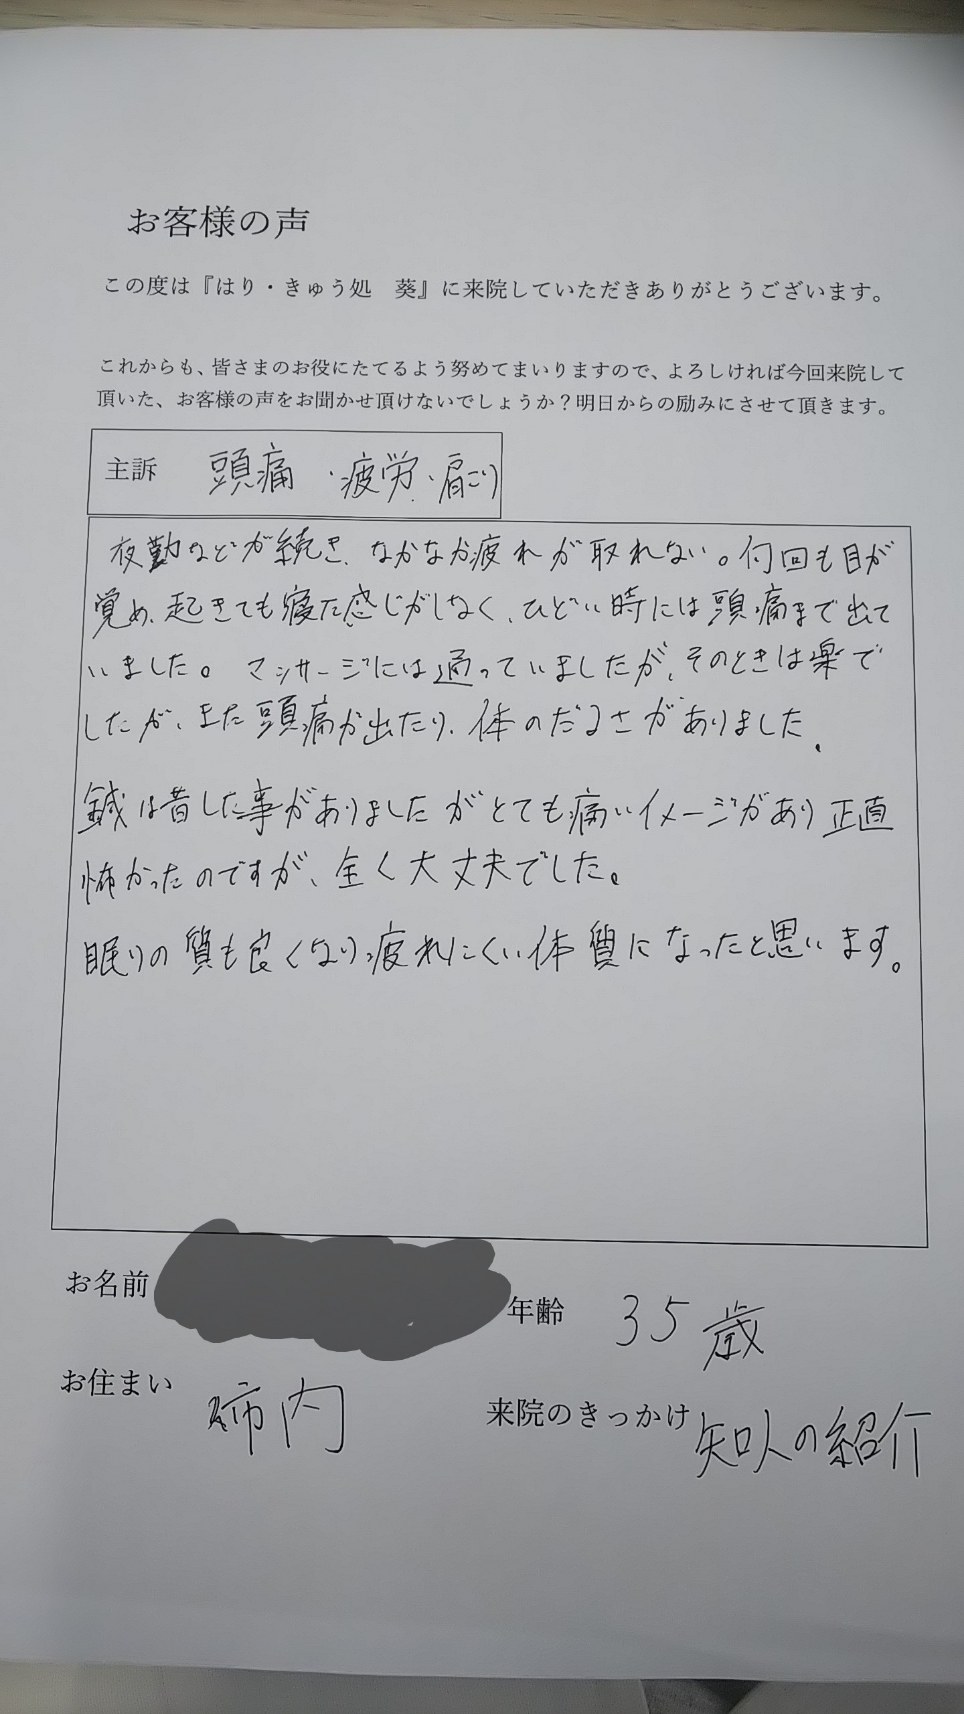 お客様の声
この度は『はり・きゅう処 葵』に来院していただきありがとうございます。
これからも、皆さまのお役にたてるよう努めてまいりますので、よろしければ今回来院して
頂いた、お客様の声をお聞かせ頂けないでしょうか？明日からの励みにさせて頂きます。
主訴 頭痛・疲労・肩こり
夜勤などが続き、なかなか疲れが取れない。何回も目が
覚め、起きても寝た感じがしなく、ひどい時には頭痛まで出て
いました。マッサージには通っていましたが、そのときは楽で
したが、また頭痛が出たり、体のだるさがありました。
鍼は昔した事がありましたがとても痛いイメージがあり正直
怖かったのですが、全く大丈夫でした。
眠りの質も良くなり疲れにくい体質になったと思います。
お名前
年齢 35歳
お住まい 内
来院のきっかけ 知人の紹介